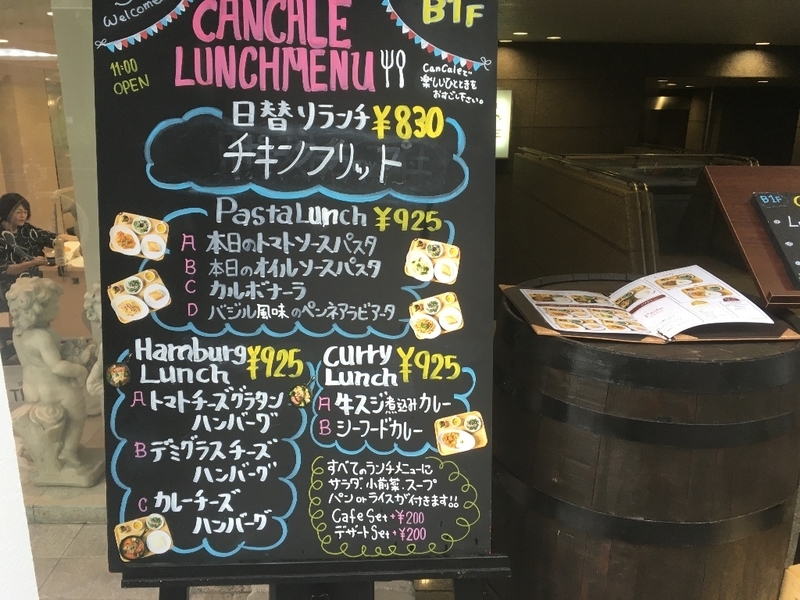 Welcome
CANCALE
LUNCHMENU
B1F
11:00
OPEN
CanCaleで
楽しいひとときを
おすごし下さい。
日替りランチ ¥830
チキンフリット
Pasta Lunch ¥925
A 本日のトマトソースパスタ
B 本日のオイルソースパスタ
C カルボナーラ
D バジル風味のペンネアラビアータ
Hamburg
Lunch ¥925
A トマトチーズグラタン
ハンバーグ
B デミグラスチーズ
ハンバーグ
C カレーチーズ
ハンバーグ
Curry
Lunch ¥925
A 牛スジ煮込みカレー
B シーフードカレー
すべてのランチメニューに
サラダ、小前菜、スープ
パン or ライスが付きます!!
Cafe Set +¥200
デザート Set +¥200
B1F